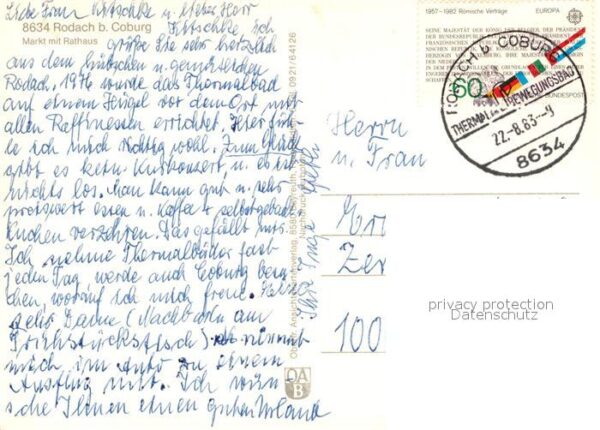 Liebe Frau Kritschke u. lieber Herr
8634 Rodach b. Coburg
Markt mit Rathaus
Kritschke, ich
grüße Sie sehr herzlich
aus dem hübschen u. gemütlichen
Rodach. 1976 wurde das Thermalbad
auf einem Hügel vor dem Ort mit
allen Raffinessen errichtet. Hier füh-
le ich mich richtig wohl. Zum Glück
gibt es kein Kurkonzert, u. es ist
nichts los. Man kann gut u. sehr
preiswert essen u. Kaffee + selbstgeback.
Kuchen verzehren. Das gefällt mir.
Ich nehme Thermalbäder fast
jeden Tag, werde auch Coburg besu-
chen, worauf ich mich freue.
Dame (Nachbarin am
Frühstückstisch) nimmt
mich im Auto zu einem
Ausflug mit. Ich wün-
sche Ihnen einen guten Urlaub
Ihre Inge
1957-1982 Römische Verträge
EUROPA
60
BUNDESPOST
RODACH B. COBURG
THERMAL-BEWEGUNGSBAD
22.-8.83-9
8634
Herrn
u. Frau
Zer
100
privacy protection
Datenschutz
OAB